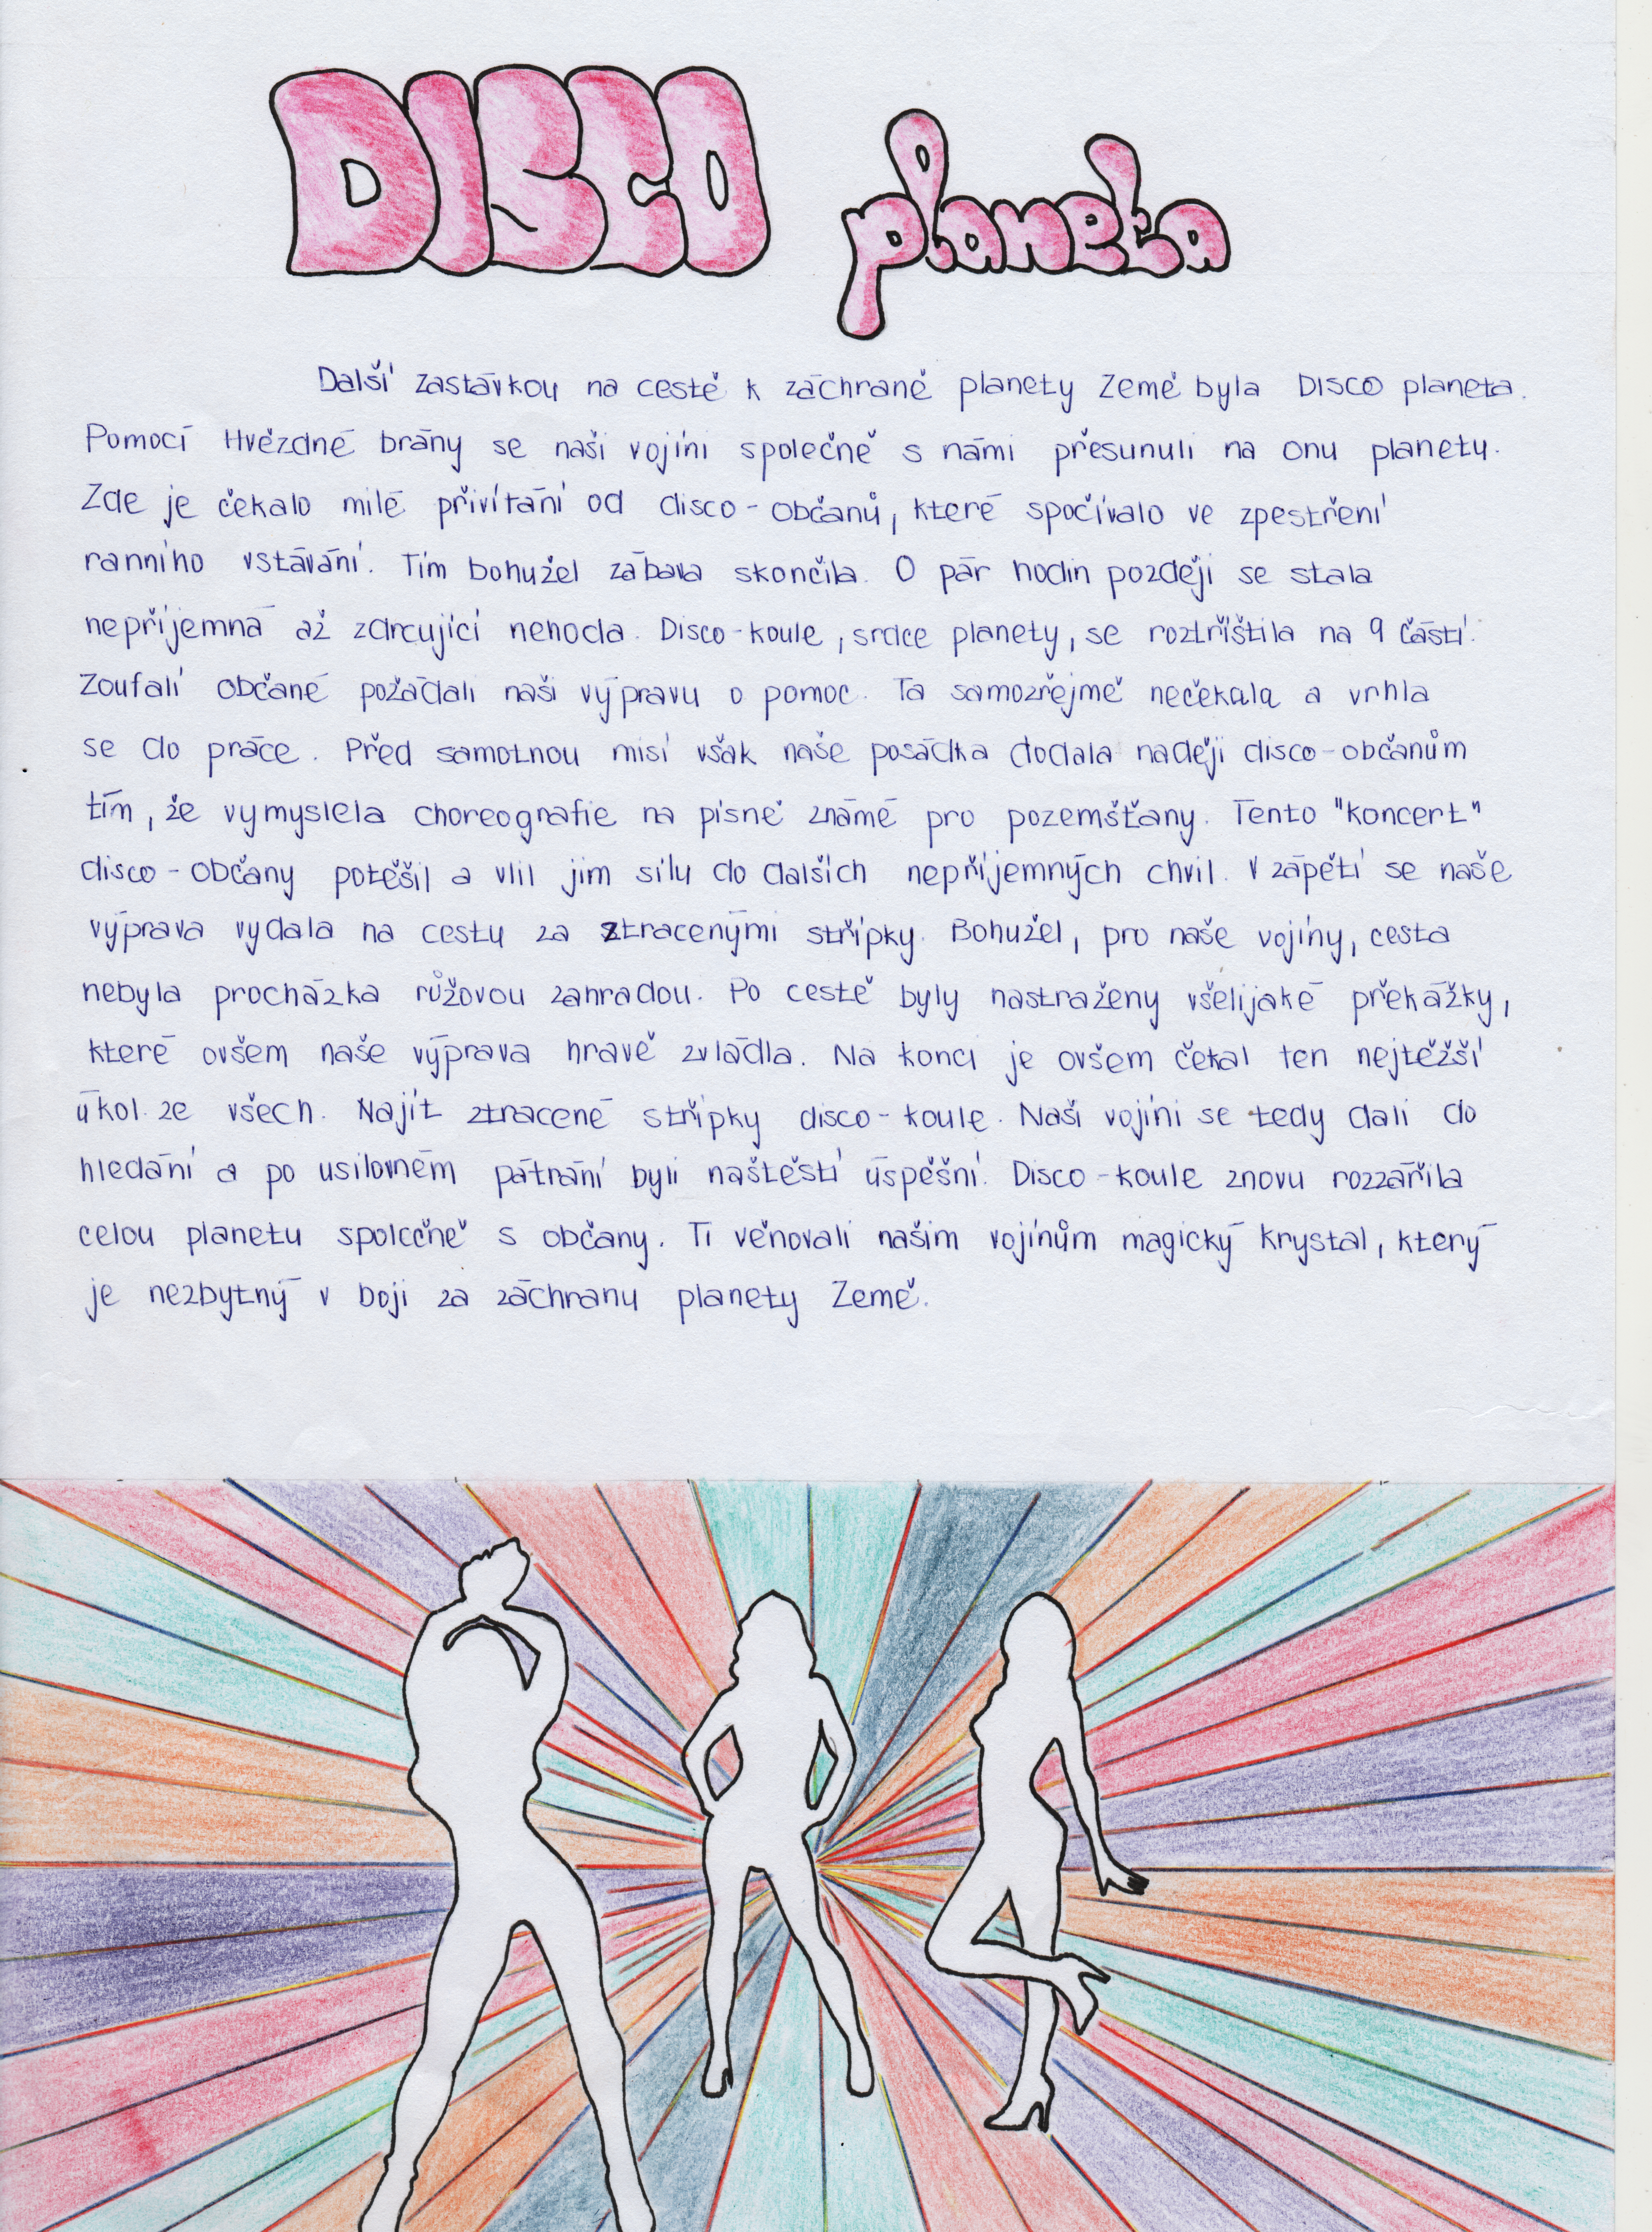 DISCO planeta
Další zastávkou na cestě k záchraně planety Země byla Disco planeta.
Pomocí Hvězdné brány se naši vojíni společně s námi přesunuli na onu planety.
Zde je čekalo milé přivítání od disco-občanů, které spočívalo ve zpestření
ranního vstávání. Tím bohužel zábava skončila. O pár hodin později se stala
nepříjemná až zdrcující nehoda. Disco-koule, srdce planety, se roztříštila na 9 částí.
Zoufalí občané požádali naši výpravu o pomoc. Ta samozřejmě nečekala a vrhla
se do práce. Před samotnou misí však naše posádka dodala naději disco-občanům
tím, že vymyslela choreografie na písně známé pro pozemšťany. Tento "koncert"
disco-občany potěšil a vlil jim sílu do dalších nepříjemných chvil. V zápětí se naše
výprava vydala na cestu za ztracenými střípky. Bohužel, pro naše vojíny, cesta
nebyla procházka růžovou zahradou. Po cestě byly nastraženy všelijaké překážky,
které ovšem naše výprava hravě zvládla. Na konci je ovšem čekal ten nejtěžší
úkol ze všech. Najít ztracené střípky disco-koule. Naši vojíni se tedy dali do
hledání a po usilovném pátrání byli naštěstí úspěšní. Disco-koule znovu rozzářila
celou planetu spolcčně s občany. Ti věnovali našim vojínům magický krystal, který
je nezbytný v boji za záchranu planety Země.